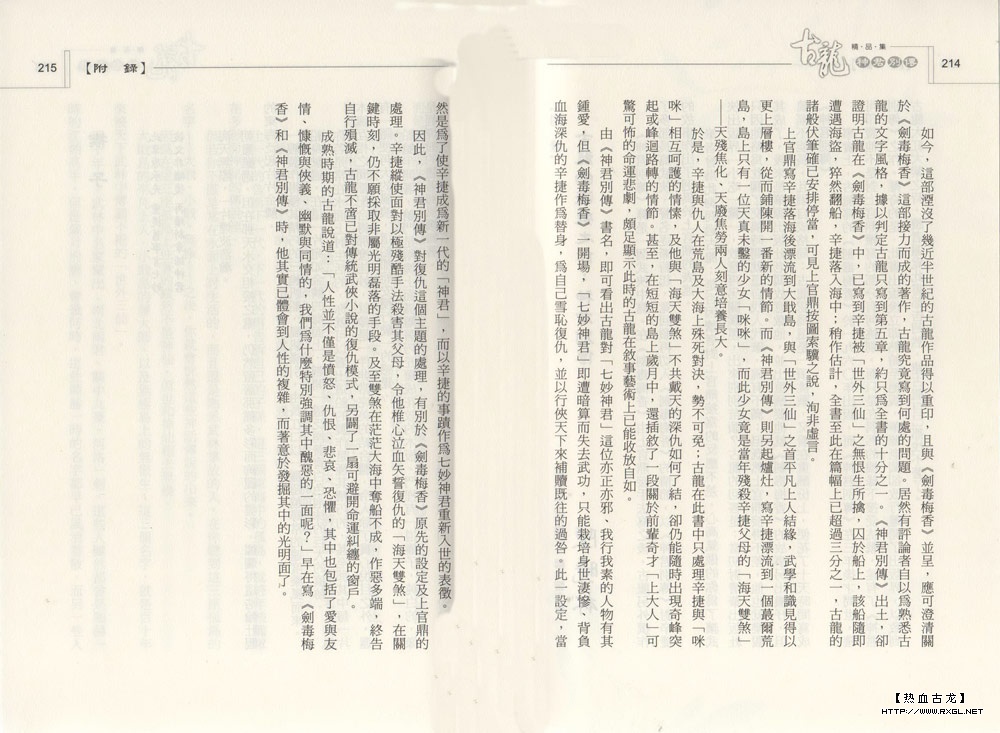 214
古龍
精·品·集
神君別傳
如今，這部湮沒了幾近半世紀的古龍作品得以重印，且與《劍毒梅香》並呈，應可澄清關
於《劍毒梅香》這部接力而成的著作，古龍究竟寫到何處的問題。居然有評論者自以為熟悉古
龍的文字風格，據以判定古龍只寫到第五章，約只為全書的十分之一。《神君別傳》出土，卻
證明古龍在《劍毒梅香》中，已寫到辛捷被「世外三仙」之無恨生所擒，囚於船上，該船隨即
遭遇海盜，猝然翻船，辛捷落入海中；稍作估計，全書至此在篇幅上已超過三分之一，古龍的
諸般伏筆確已安排停當，可見上官鼎按圖索驥之說，洵非虛言。
上官鼎寫辛捷落海後漂流到大戢島，與「世外三仙」之首平凡上人結緣，武學和識見得以
更上層樓，從而鋪陳開一番新的情節。而《神君別傳》則另起爐灶，寫辛捷漂流到一個蕞爾荒
島，島上只有一位天真未鑿的少女「咪咪」，而此少女竟是當年殘殺辛捷父母的「海天雙煞」
——天殘焦化、天廢焦勞兩人刻意培養長大。
於是，辛捷與仇人在荒島及大海上殊死對決，勢不可免；古龍在此書中只處理辛捷與「咪
咪」相互呵護的情愫，及他與「海天雙煞」不共戴天的深仇如何了結，卻仍能隨時出現奇峰突
起或峰迴路轉的情節。甚至，在短短的島上歲月中，還插敘了一段關於前輩奇才「上大人」可
驚可怖的命運悲劇，頗足顯示此時的古龍在敘事藝術上已能收放自如。
由《神君別傳》書名，即可看出古龍對「七妙神君」這位亦正亦邪、我行我素的人物有其
鍾愛，但《劍毒梅香》一開場，「七妙神君」即遭暗算而失去武功，只能栽培身世淒慘、背負
血海深仇的辛捷作為替身，為自己雪恥復仇，並以行俠天下來補贖既往的過咎。此一設定，當
215
【附　錄】
然是為了使辛捷成為新一代的「神君」，而以辛捷的事蹟作為七妙神君重新入世的表徵。
因此，《神君別傳》對復仇這個主題的處理，有別於《劍毒梅香》原先的設定及上官鼎的
處理。辛捷縱使面對以極殘酷手法殺害其父母，令他椎心泣血矢誓復仇的「海天雙煞」，在關
鍵時刻，仍不願採取非屬光明磊落的手段。及至雙煞在茫茫大海中奪船不成，作惡多端，終告
自行殞滅，古龍不啻已對傳統武俠小說的復仇模式，另闢了一扇可避開命運糾纏的窗戶。
成熟時期的古龍說道：「人性並不僅是憤怒、仇恨、悲哀、恐懼，其中也包括了愛與友
情、慷慨與俠義、幽默與同情的，我們為什麼特別強調其中醜惡的一面呢？」早在寫《劍毒梅
香》和《神君別傳》時，他其實已體會到人性的複雜，而著意於發掘其中的光明面了。
【热血古龙】
HTTP://WWW.RXGL.NET